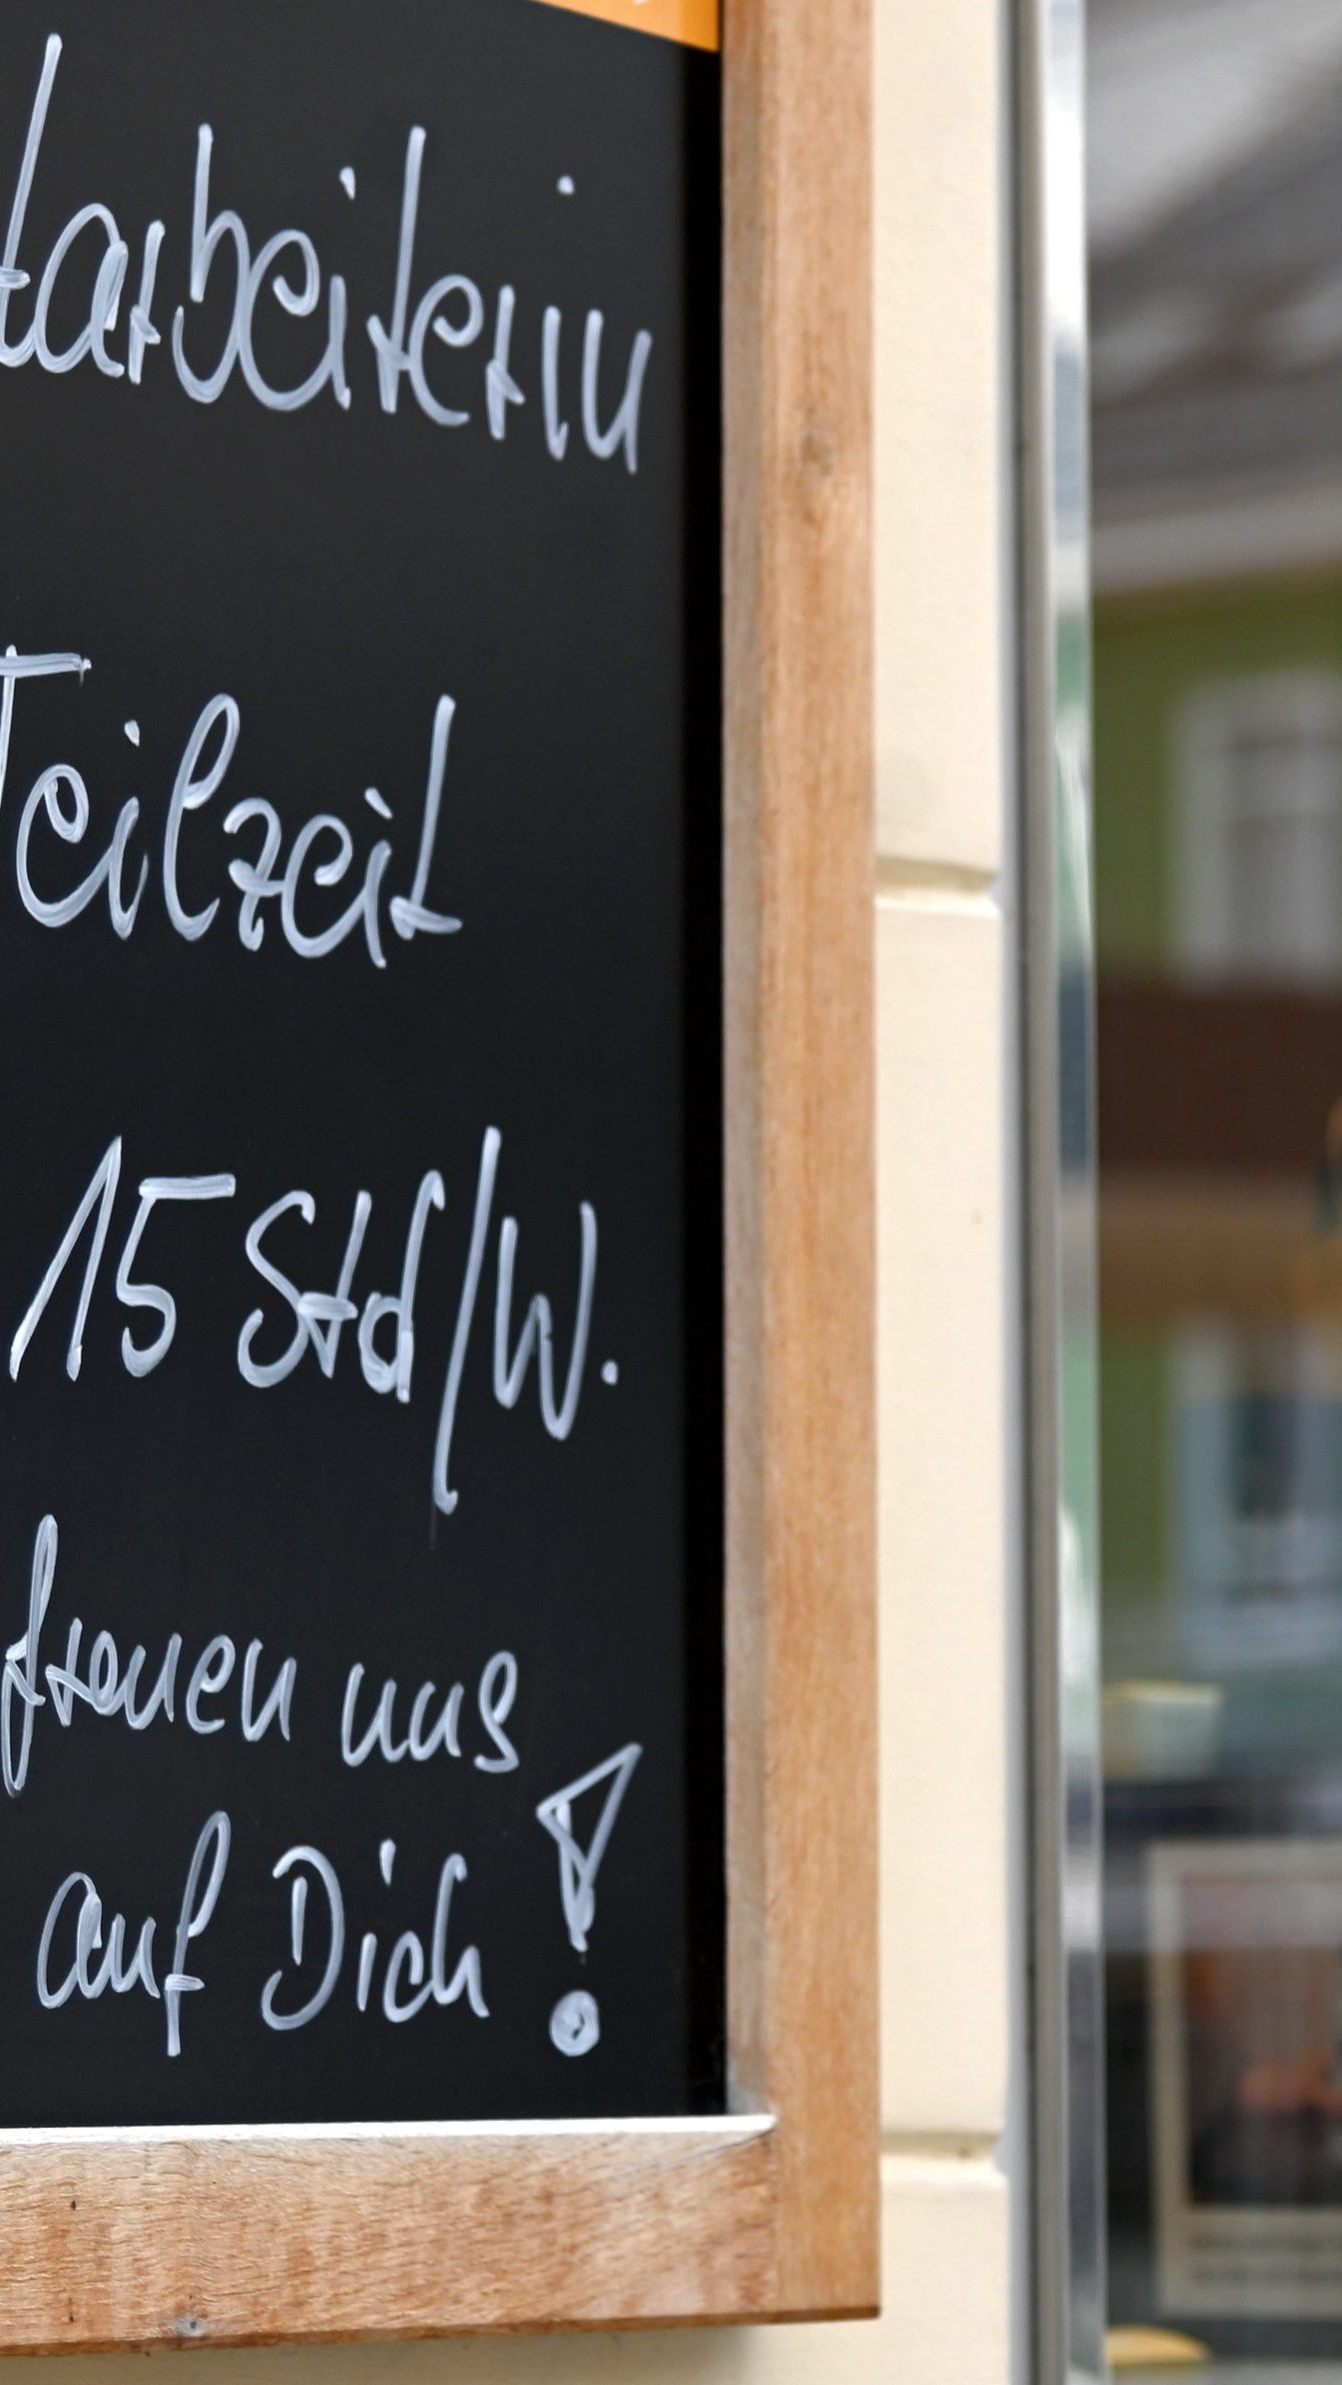 tarbeiterin
Teilzeit
15 Std/W.
freuen uns
auf Dich!